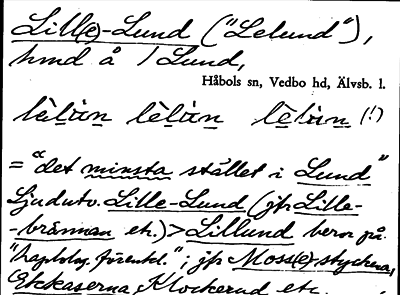 Lill(e)-Lund ("Lelund"),
hmd å / Lund,
Håbols sn, Vedbo hd, Älvsb. l.
lèlùn lèlùn lèlùn (!)
= "det minsta stället i Lund"
Ljudutv. Lille-Lund (jfr Lille-
-brännan etc.) > Lillund beror på
"haplolog. förenkl."; jfr Moss(e)stycken,
Ekkaserna, Klockerud etc.